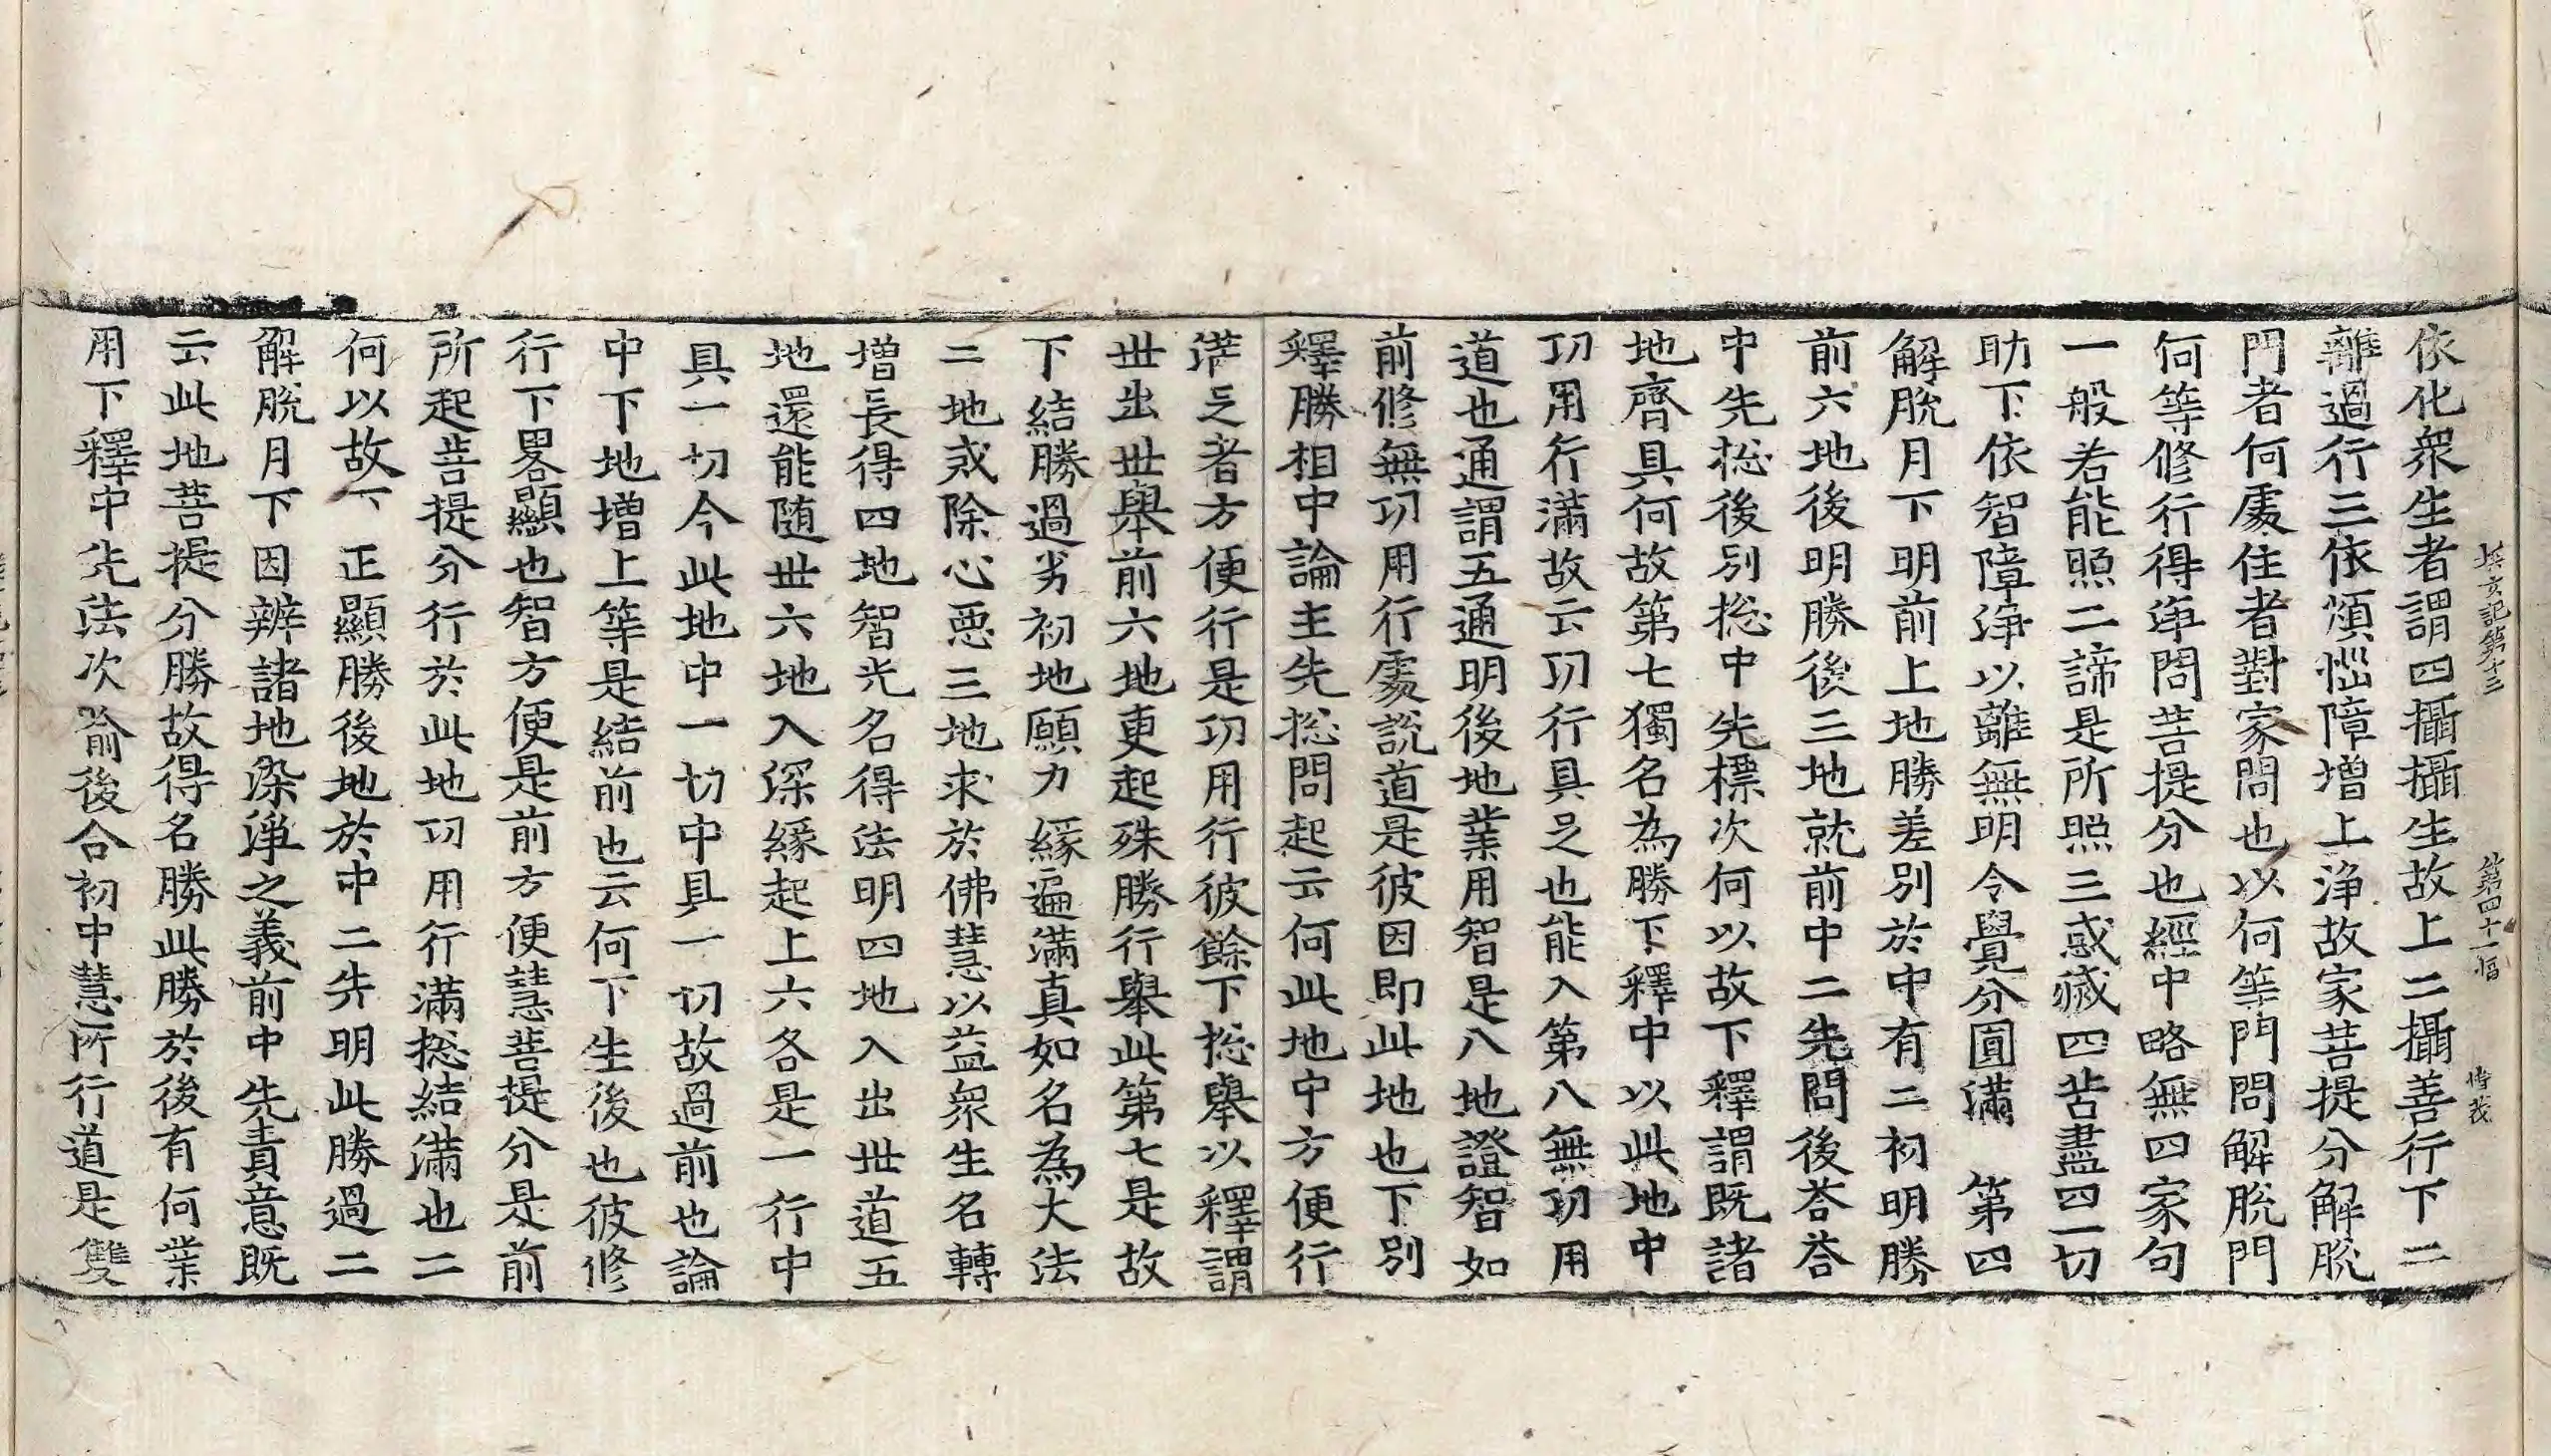 探玄記第十三　第四十一幅
依化衆生者謂四攝攝生故上二攝善行下二
離過行三依煩惱障增上淨故家菩提分解脫
門者何處住者對家問也以何等門問解脫門
何等修行得淨問菩提分也經中略無四家句
一般若能照二諦是所照三惑滅四苦盡四一切
助下依智障淨以離無明令覺分圓滿　第四
解脫月下明前上地勝差別於中有二初明勝
前六地後明勝後三地就前中二先問後荅荅
中先捴後別捴中先標次何以故下釋謂既諸
地齊具何故第七獨名為勝下釋中以此地中
㓛用行滿故云㓛行具足也能入第八無㓛用
道也通謂五通明後地業用智是八地證智如
前修無㓛用行處說道是彼因即此地也下別
釋勝相中論主先捴問起云何此地中方便行
滿足者方便行是㓛用行彼餘下捴舉以釋謂
世出世舉前六地更起殊勝行舉此第七是故
下結勝過劣初地願力緣遍滿真如名為大法
二地戒除心惡三地求於佛慧以益衆生名轉
增長得四地智光名得法明四地入出世道五
地還能随世六地入深緣起上六各是一行中
具一切今此地中一切中具一切故過前也論
中下地增上等是結前也云何下生後也彼修
行下畧顯也智方便是前方便慧菩提分是前
所起菩提分行於此地㓛用行滿捴結滿也二
何以故下正顯勝後地於中二先明此勝過二
解脫月下因辨諸地染淨之義前中先責意既
云此地菩提分勝故得名勝此勝於後有何業
用下釋中先法次喻後合初中慧所行道是雙